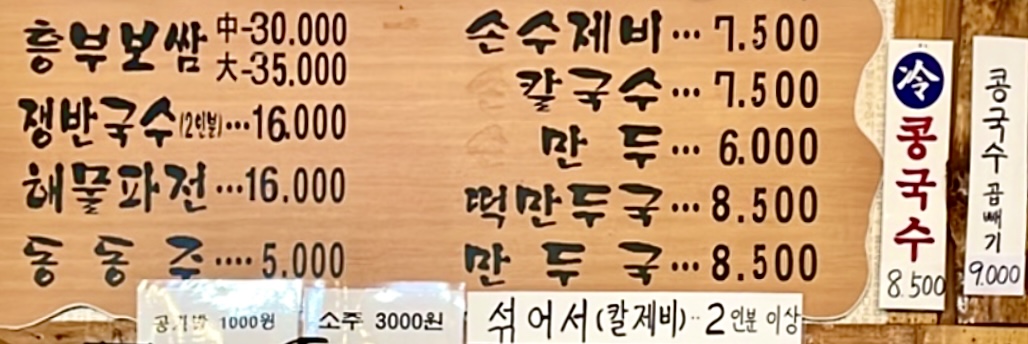 흥부보쌈 中-30.000
大-35.000
쟁반국수(2인분)···16.000
해물파전···16.000
동동주····5.000
공기밥 1000원
소주 3000원
손수제비···7.500
칼국수···7.500
만두···6.000
떡만두국···8.500
만두국···8.500
섞어서(칼제비)··2인분 이상
冷
콩국수
8.500
콩국수곱빼기
9.000